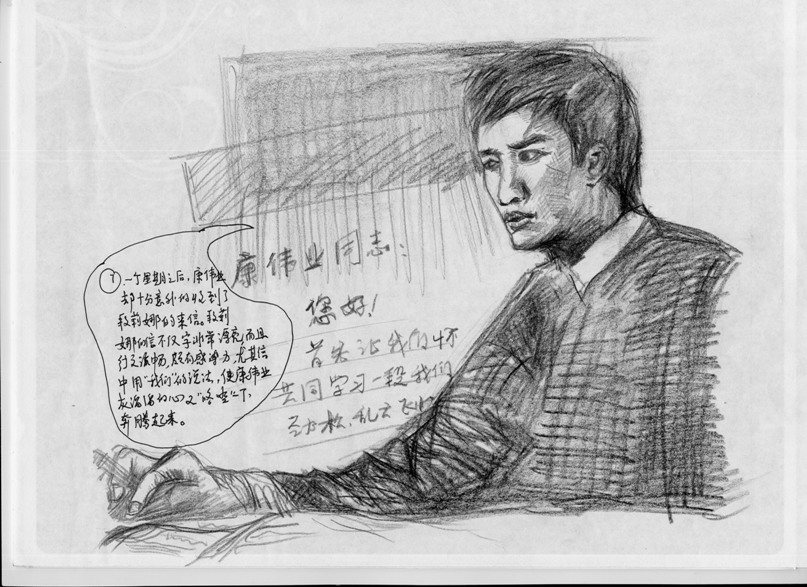 7 一个星期之后,康伟业
却十分意外的收到了
段莉娜的来信。段莉
娜的信不仅字非常漂亮,而且
行文流畅,颇有感染力,尤其信
中用“我们”的说法,使康伟业
灰溜溜的心又“一下,
奔腾起来。
康伟业同志:
您好!
首先让我们怀
共同学习一段我们
劲松,乱云飞